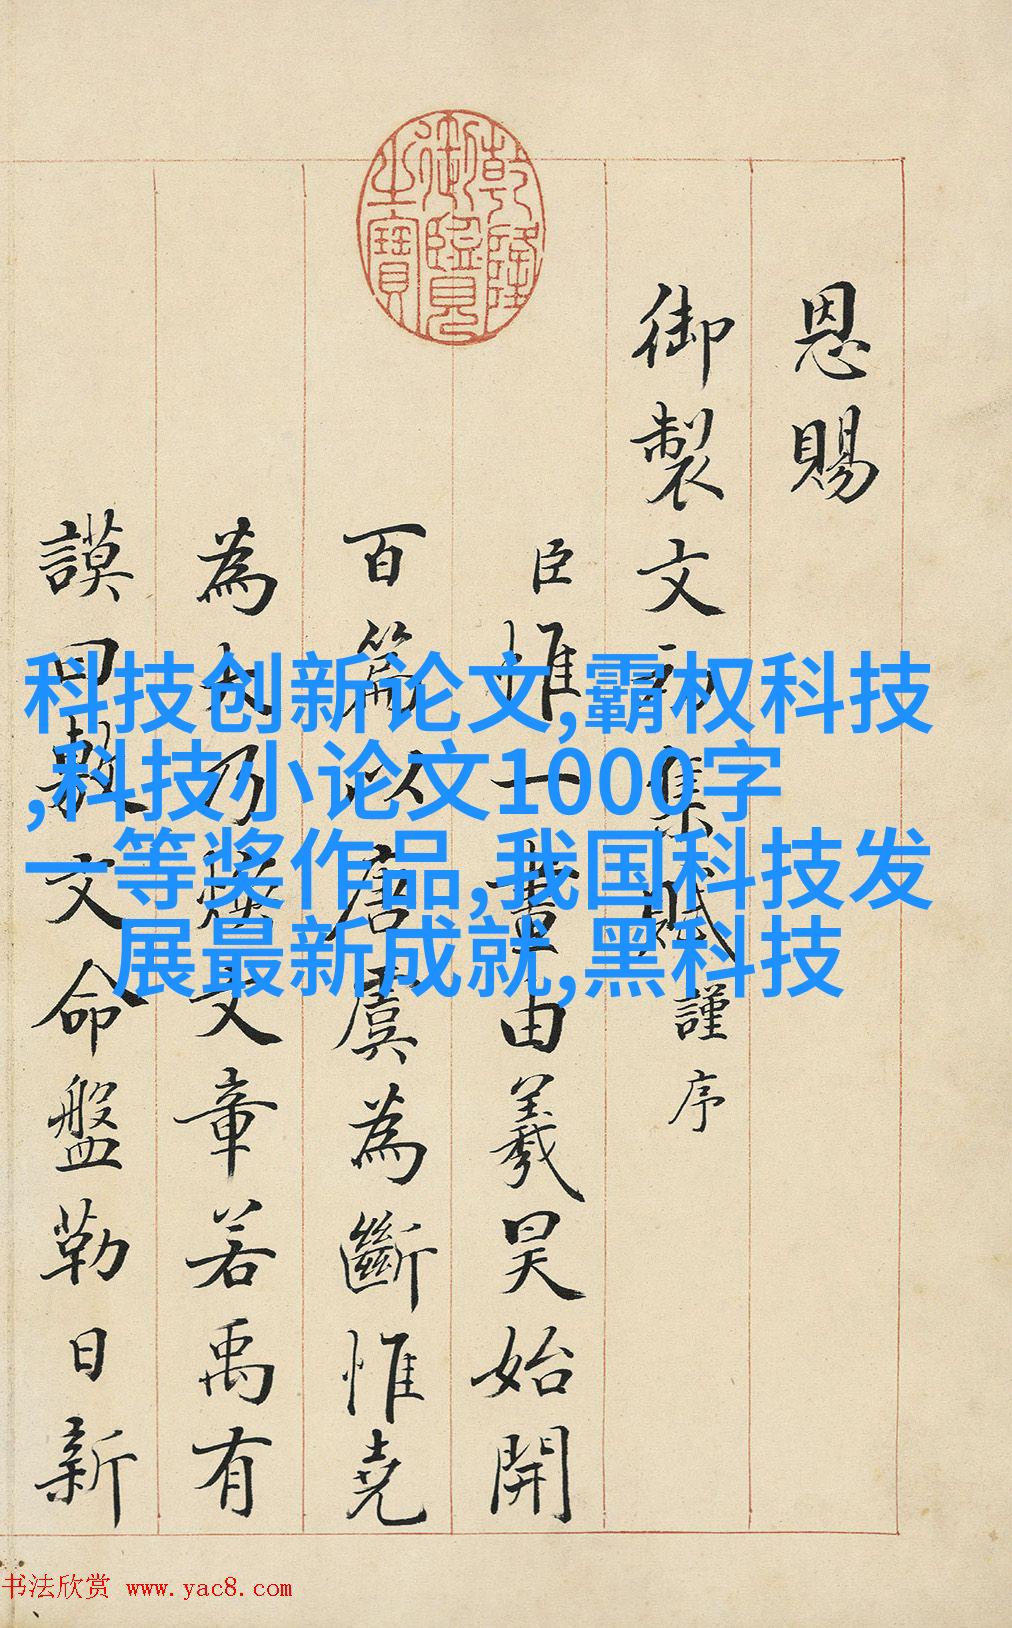 乾隆御覽之寶
恩賜
御製文初集謹序
臣惟一畫由羲昊始開
百篇以唐虞為斷惟堯
為大乃煥文章若禹有
謨曰敷文命盤勒日新
科技创新论文,霸权科技
,科技小论文1000字
一等奖作品,我国科技发
展最新成就,黑科技
书法欣赏 www.yac8.com